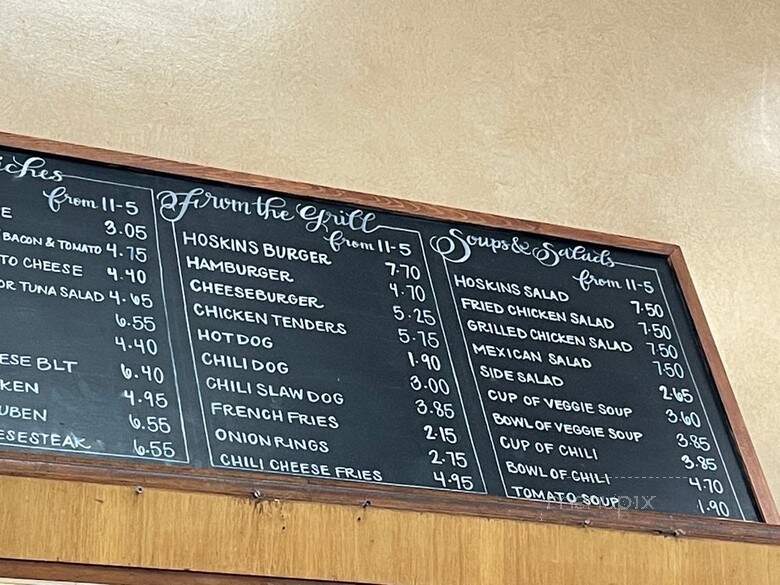 iches
from 11-5
E 3.05
BACON & TOMATO 4.75
TO CHEESE 4.40
OR TUNA SALAD 4.65
6.55
4.40
ESE BLT 6.40
KEN 4.95
UBEN 6.55
ESESTEAK 6.55
From the Grill
from 11-5
HOSKINS BURGER 7.70
HAMBURGER 4.70
CHEESEBURGER 5.25
CHICKEN TENDERS 5.75
HOT DOG 1.90
CHILI DOG 3.00
CHILI SLAW DOG 3.85
FRENCH FRIES 2.15
ONION RINGS 2.75
CHILI CHEESE FRIES 4.95
Soups & Salads
from 11-5
HOSKINS SALAD 7.50
FRIED CHICKEN SALAD 7.50
GRILLED CHICKEN SALAD 7.50
MEXICAN SALAD 7.50
SIDE SALAD 2.65
CUP OF VEGGIE SOUP 3.60
BOWL OF VEGGIE SOUP 3.85
CUP OF CHILI 3.85
BOWL OF CHILI 4.70
TOMATO SOUP 1.90